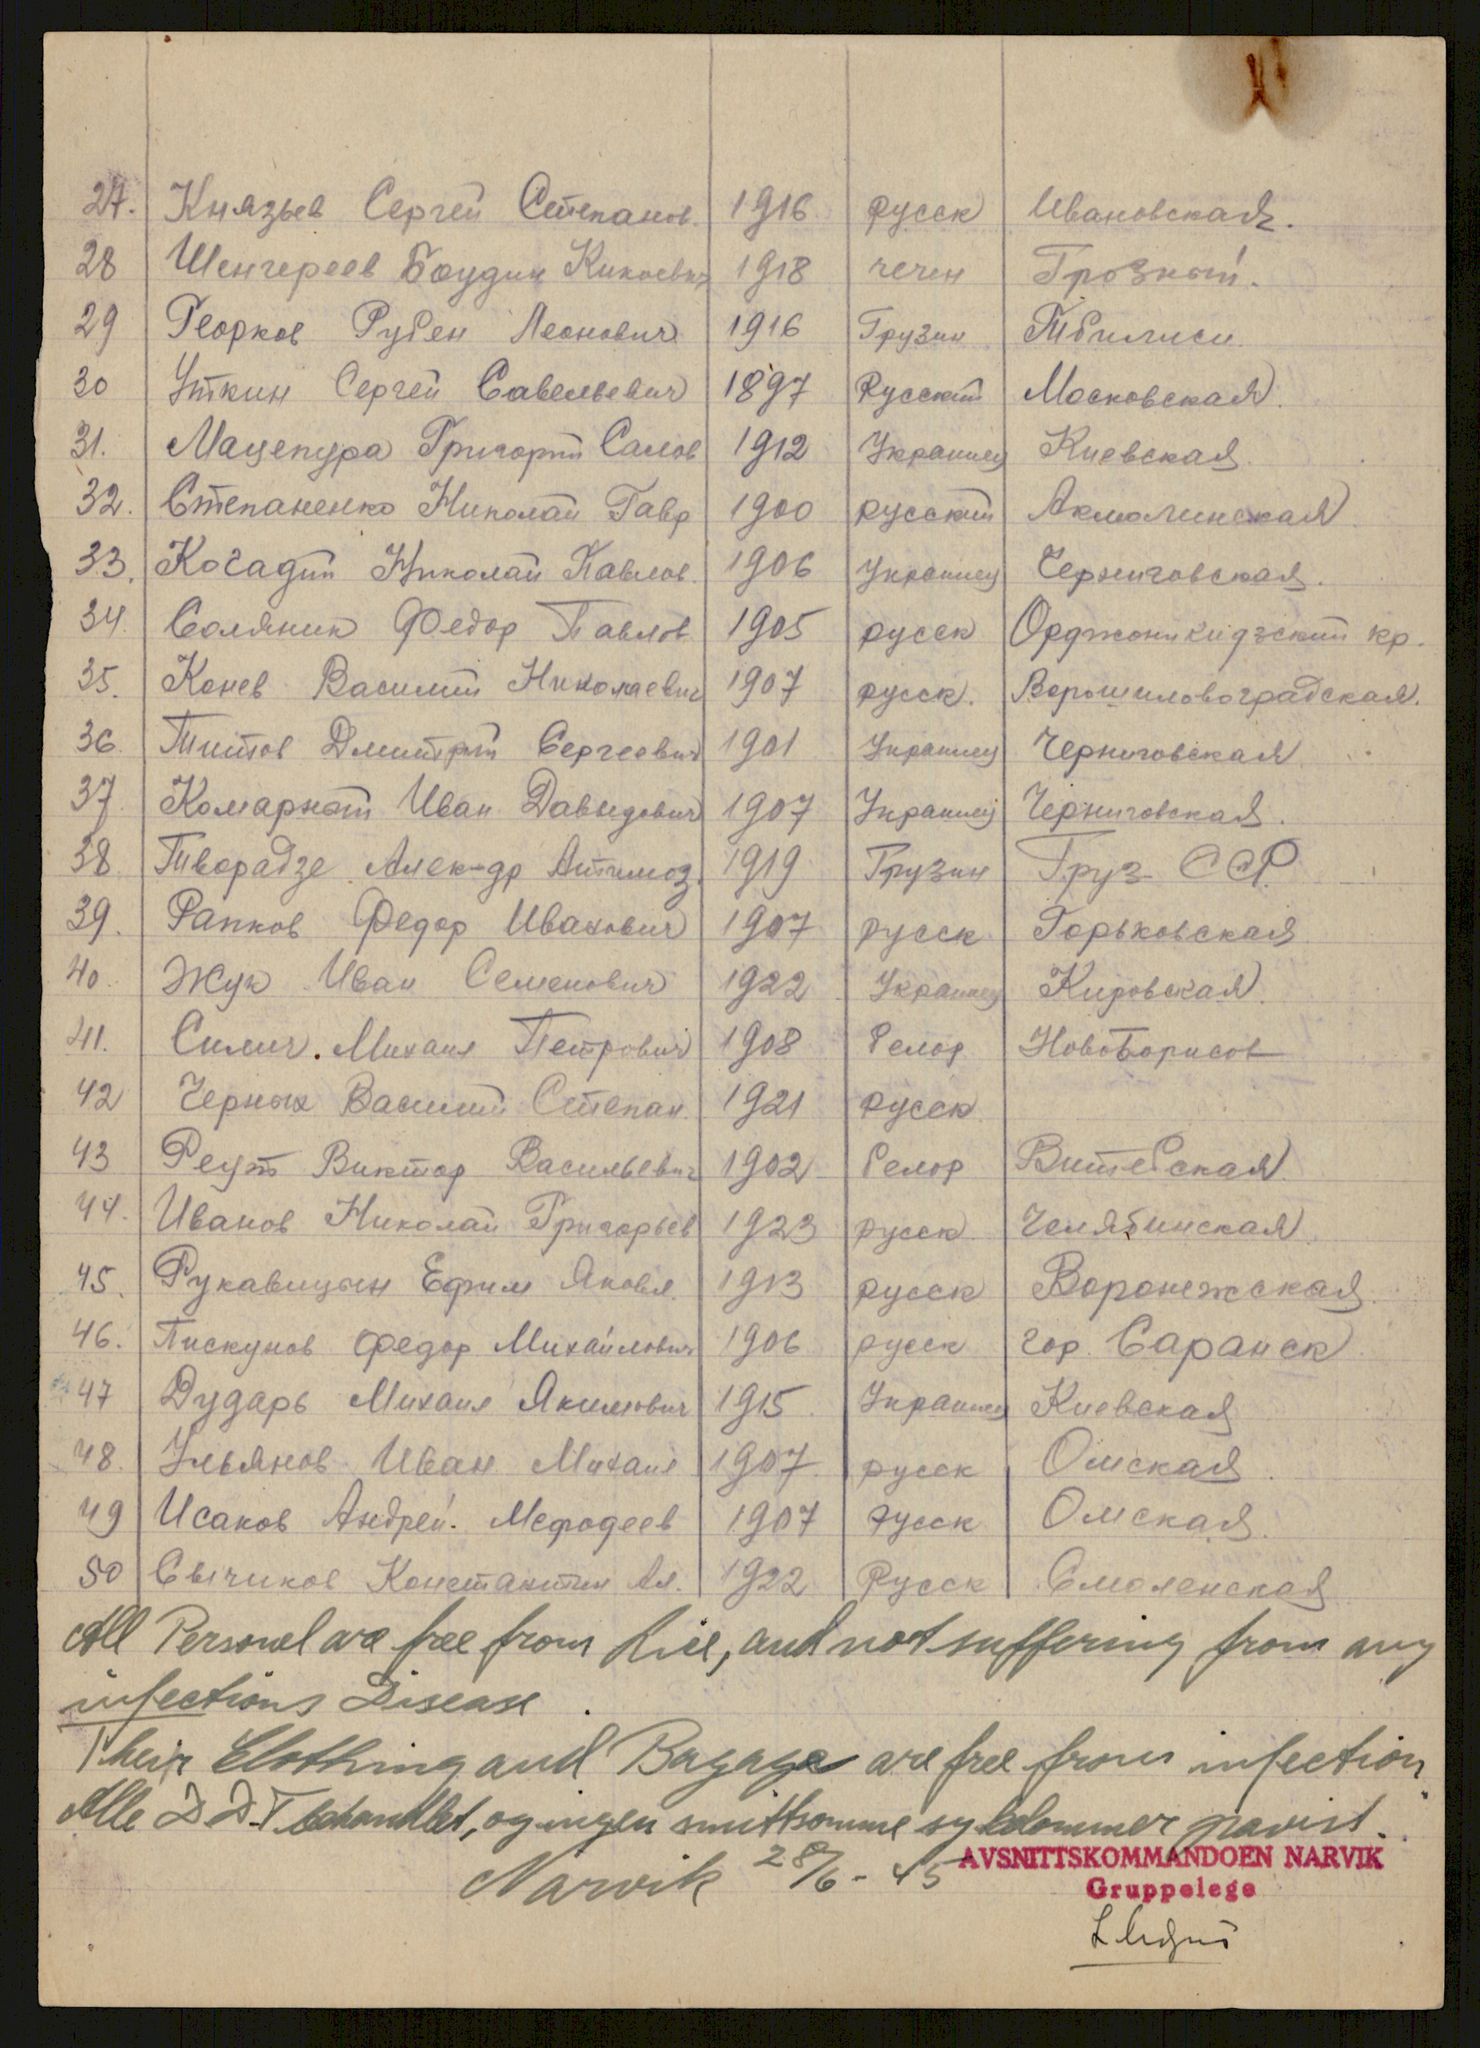 27. Князьев Сергей Степанов. 1916 русск Ивановская.
28 Шенгереев Баудин 1918 чечен Грозный.
29 Георков Рубен Леонович 1916 Грузин Тбилиси.
30 Уткин Сергей Савельевич 1897 Русский Московская.
31. Мацепура Григорий Салов 1912 Украинец Киевская.
32. Степаненко Николай Гавр 1900 русский Акмолинская
33. Кочадий Николай Павлов. 1906 Украинец Черниговская.
34. Соляник Федор Павлов 1905 русск Орджоникидзский кр.
35. Конев Василий Николаевич 1907 русск. Ворошиловоградская.
36. Титов Дмитрий Сергеевич 1901 Украинец Черниговская
37. Комарный Иван Давыдович 1907 Украинец Черниговская.
38. Творадзе Алек-др 1919 Грузин Груз ССР
39. Рапков Федор Иванович 1907 русск Горьковская
40. Жук Иван Семенович 1922 Украинец Кировская.
41. Силич. Михаил Петрович 1908 белор НовоБорисов
42 Черных Василий Степан. 1921 русск
43 Реут Виктор Васильевич 1902 белор Витебская
44. Иванов Николай Григорьев 1923 русск Челябинская
45. Рукавицын Ефим Яковл. 1913 русск Воронежская
46. Пискунов Федор Михайлович 1906 русск гор. Саранск
47 Дударь Михаил Якимович 1915 Украинец Киевская
48. Ульянов Иван Михаил 1907 русск Омская
49 Исаков Андрей. Мефодеев 1907 русск Омская.
50 Свичиков Константин Ал. 1922 Русск Смоленская
All Personel are free from lice, and not suffering from any
infections Disease.
Their Clothing and Bagage are free from infection
Alle D.D.T behandlet, og ingen smittsomme sykdommer påvist.
Narvik 28/6-45
AVSNITTSKOMMANDOEN NARVIK
Gruppelege